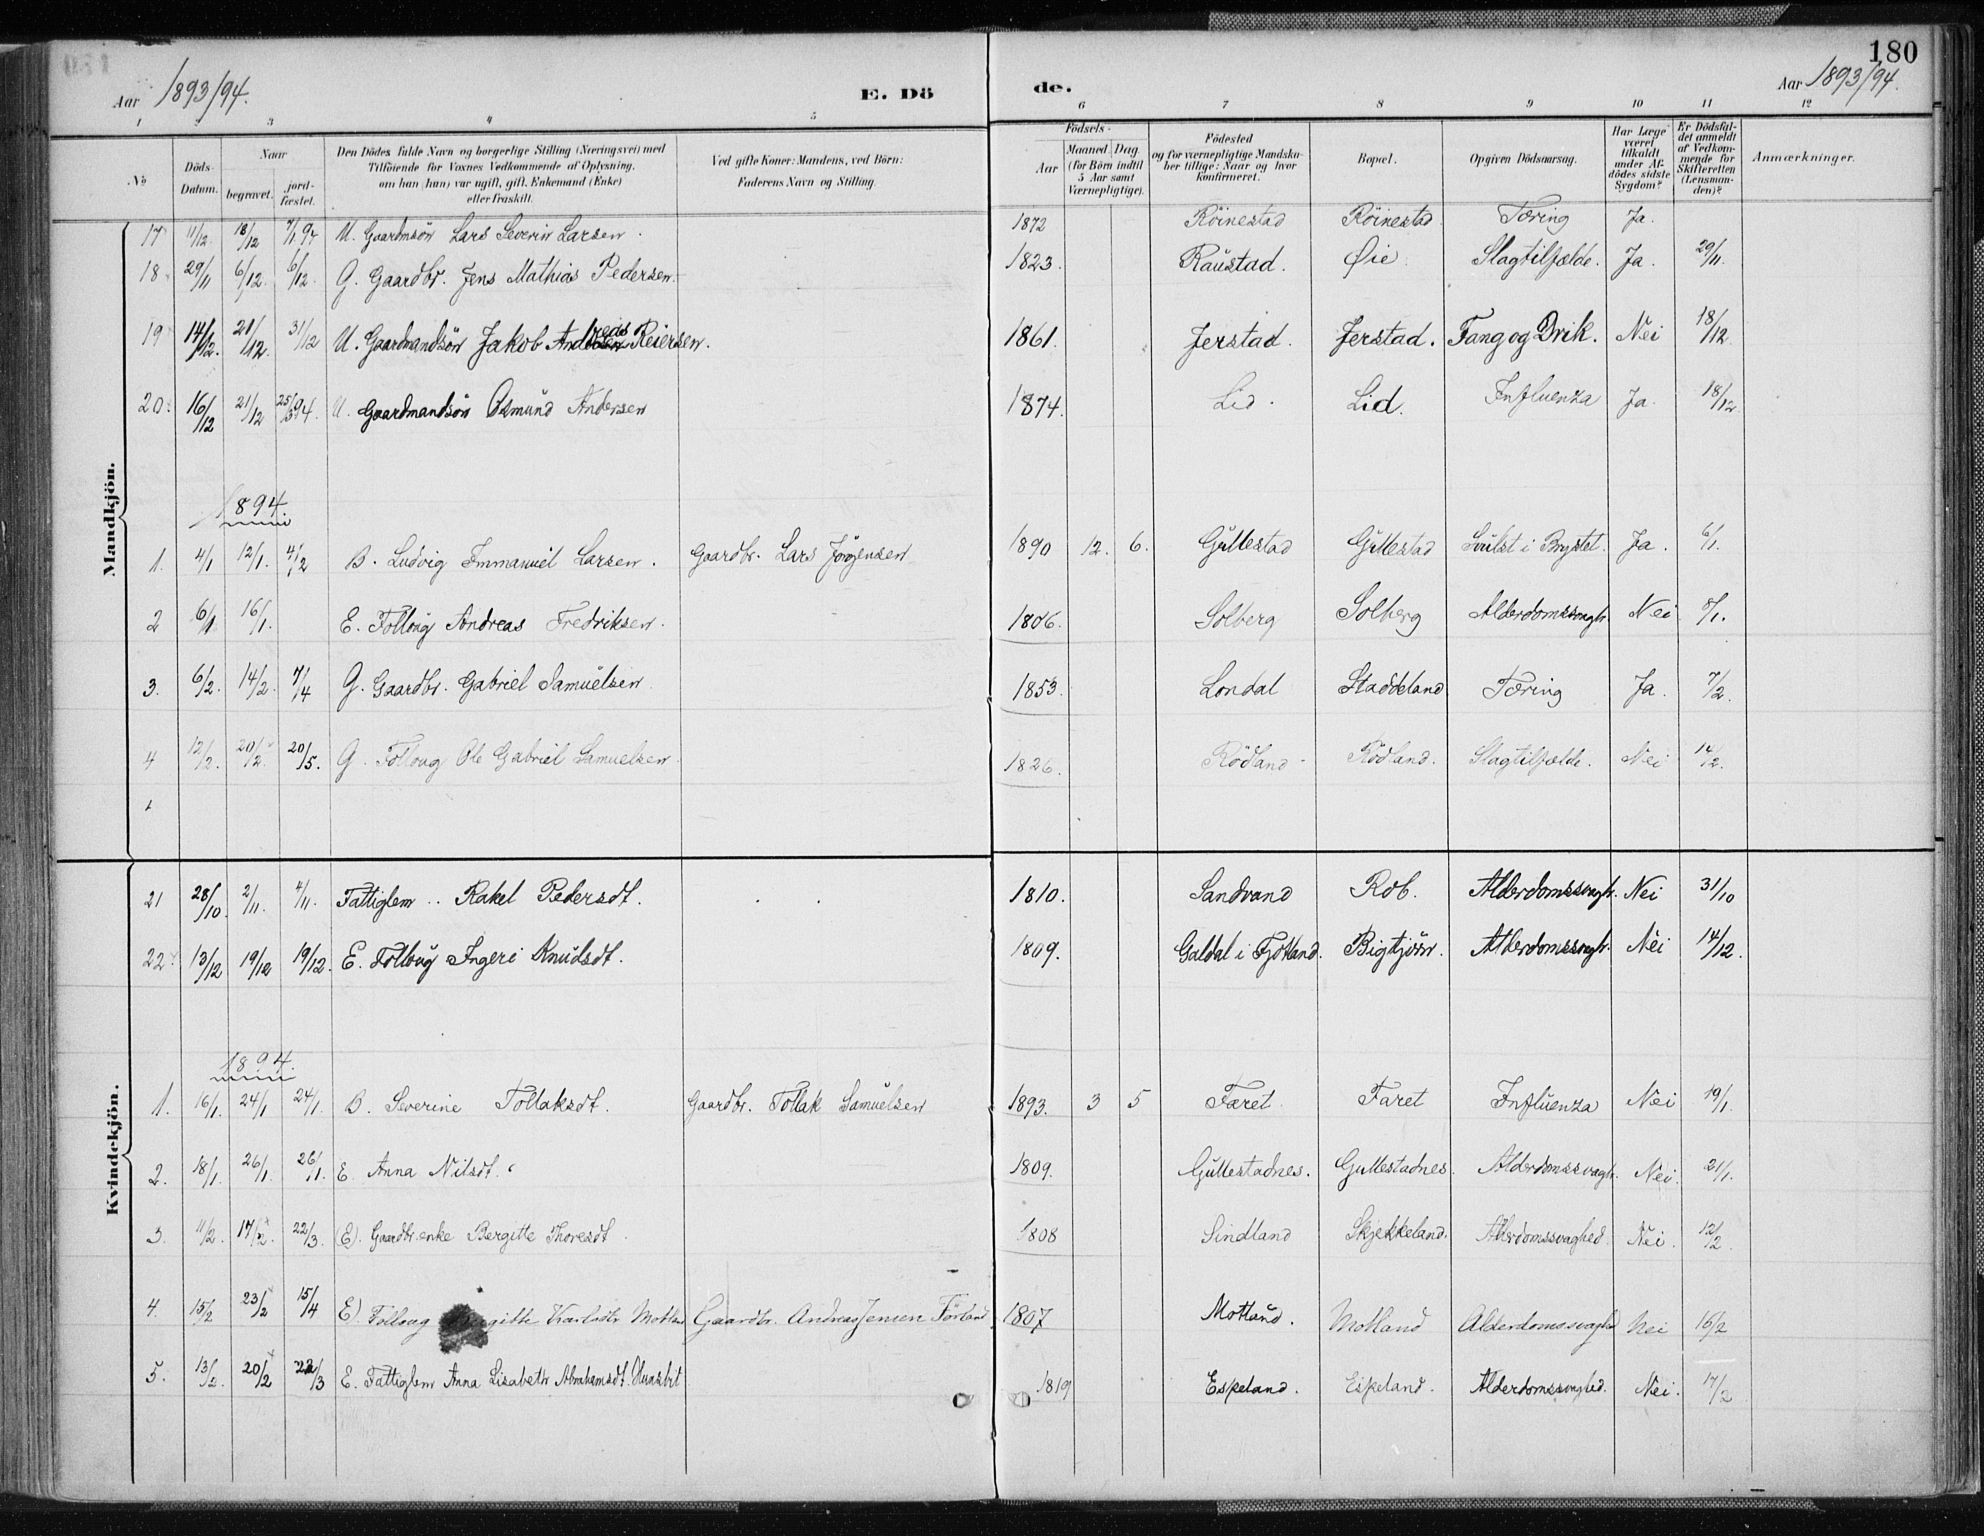 180
Aar 1893/94. E. Dö de. Aar 1893/94.
1 2 3 4 5 6 7 8 9 10 11 12
No
Döds-Datum.
Naar
begravet.
jord-fæstet.
Den Dödes fulde Navn og borgerlige Stilling (Næringsvei) med
Tilföiende for Voxnes Vedkommende af Oplysning,
om han (hun) var ugift, gift, Enkemand (Enke)
eller fraskilt.
Ved gifte Koner: Mandens, ved Börn:
Faderens Navn og Stilling.
Födsels-
Aar
Maaned. Dag.
(for Börn indtil
5 Aar samt
Værnepligtige).
Födested
og for værnepligtige Mandska-
ber tillige: Naar og hvor
konfirmeret.
Bopæl.
Opgiven Dödsaarsag.
Har Læge
været
tilkaldt
under Af-
dödes sidste
Sygdom?
Er Dödsfal-
det anmeldt
af Vedkom-
mende for
Skifteretten
(Lensman-
den)?
Anmærkninger.
Mandkjön.
17 11/12. 18/12 7/1 94 U. Gaardmsön Lars Severin Larsen. 1872 Röinestad Röinestad. Tæring Ja.
18 29/11 6/12. 6/12. G. Gaardbr. Jens Mathias Pedersen. 1823. Raustad. Øie. Slagtilfælde. Ja. 29/11.
19 14/12. 21/12. 31/12 U. Gaardmandsön Jakob Andreas Reiersen. 1861. Jerstad. Jerstad. Fang og Drik. Nei 18/12
20. 16/12 21/12 25/3 94. U. Gaardmandsön Osmund Andersen 1874. Lid. Lid. Influenza Ja. 18/12.
1894.
1. 4/1 12/1. 4/2 B. Ludvig Immanuel Larsen. Gaardbr. Lars Jörgensen 1890 12. 6. Gullestad Gullestad Svulst i Brystet. Ja. 6/1.
2 6/1 16/1. E. Folloug Andreas Fredriksen. 1806. Solberg Solberg Alderdomssvagh. Nei 8/1.
3. 6/2. 14/2. 7/4 G. Gaardbr. Gabriel Samuelsen. 1853. Londal Staddeland Tæring Ja. 7/2.
4 12/2. 20/2. 20/5. G. Folloug Ole Gabriel Samuelsen. 1826. Rödland Rödland. Slagtilfælde. Nei 14/2.
Kvindekjön.
21 28/10. 2/11. 4/11. Fattiglem Rakel Pedersdt. 1810. Sandvand Rob. Alderdomssvagh. Nei 31/10
22 13/12 19/12 19/12. E. Folloug Ingeri Knudsdt. 1809. Galdal i Fjotland. Bigtjörn. Alderdomssvagh. Nei 14/12.
1894.
1. 16/1. 24/1 24/1. B. Severine Tollaksdt. Gaardbr. Tollak Samuelsen 1893. 3 5 Faret Faret Influenza Nei 19/1.
2. 18/1. 26/1. 26/1. E Anna Nilsdt. 1809. Gullestadnes. Gullestadnes. Alderdomssvagh. Nei. 21/1.
3. 11/2. 17/2. 22/3. (E). Gaardbr.enke Bergitte Thoresdt. 1808 Sindland Skjekkeland. Alderdomssvaghed. Nei. 12/2
4. 15/2 23/2 15/4 E) Folloug Motland Gaardbr. Andreas Jensen Förland 1807 Motland. Motland Alderdomssvaghed Nei 16/2
5. 13/2. 20/2 22/3 E. Fattiglem Anna Lisabeth Abrahamsdt. 1819 Espeland. Espeland. Alderdomssvaghed. Nei. 17/2